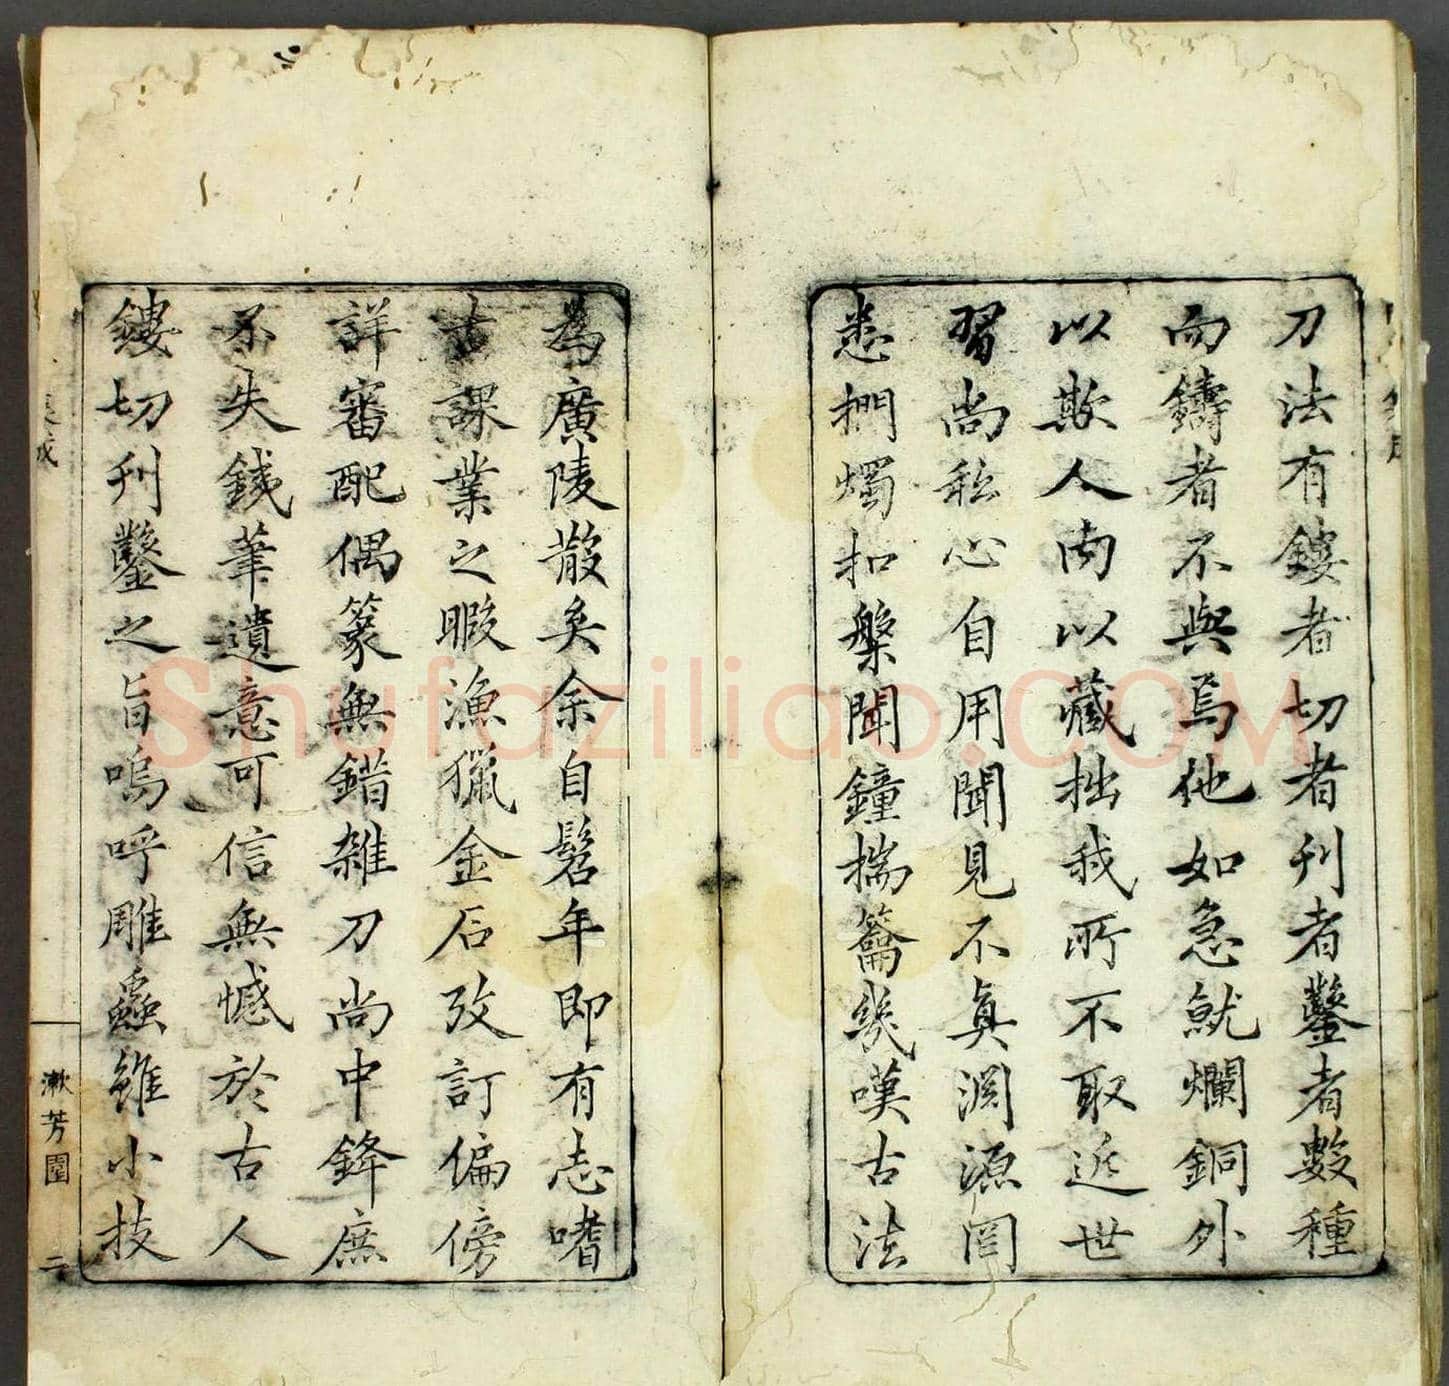 刀法有鏤者切者刊者鑿者數種
而鑄者不與焉他如急就爛銅外
以欺人內以藏拙我所不取近世
習尚私心自用聞見不真淵源罔
悉捫燭扣槃聞鐘揣籥幾嘆古法
為廣陵散矣余自髫年即有志嗜
古課業之暇漁獵金石攷訂偏傍
詳審配偶篆無錯雜刀尚中鋒庶
不失銭筆遺意可信無憾於古人
鏤切刊鑿之旨嗚呼雕蟲雖小技
漱芳園
二
shufaziliao.com